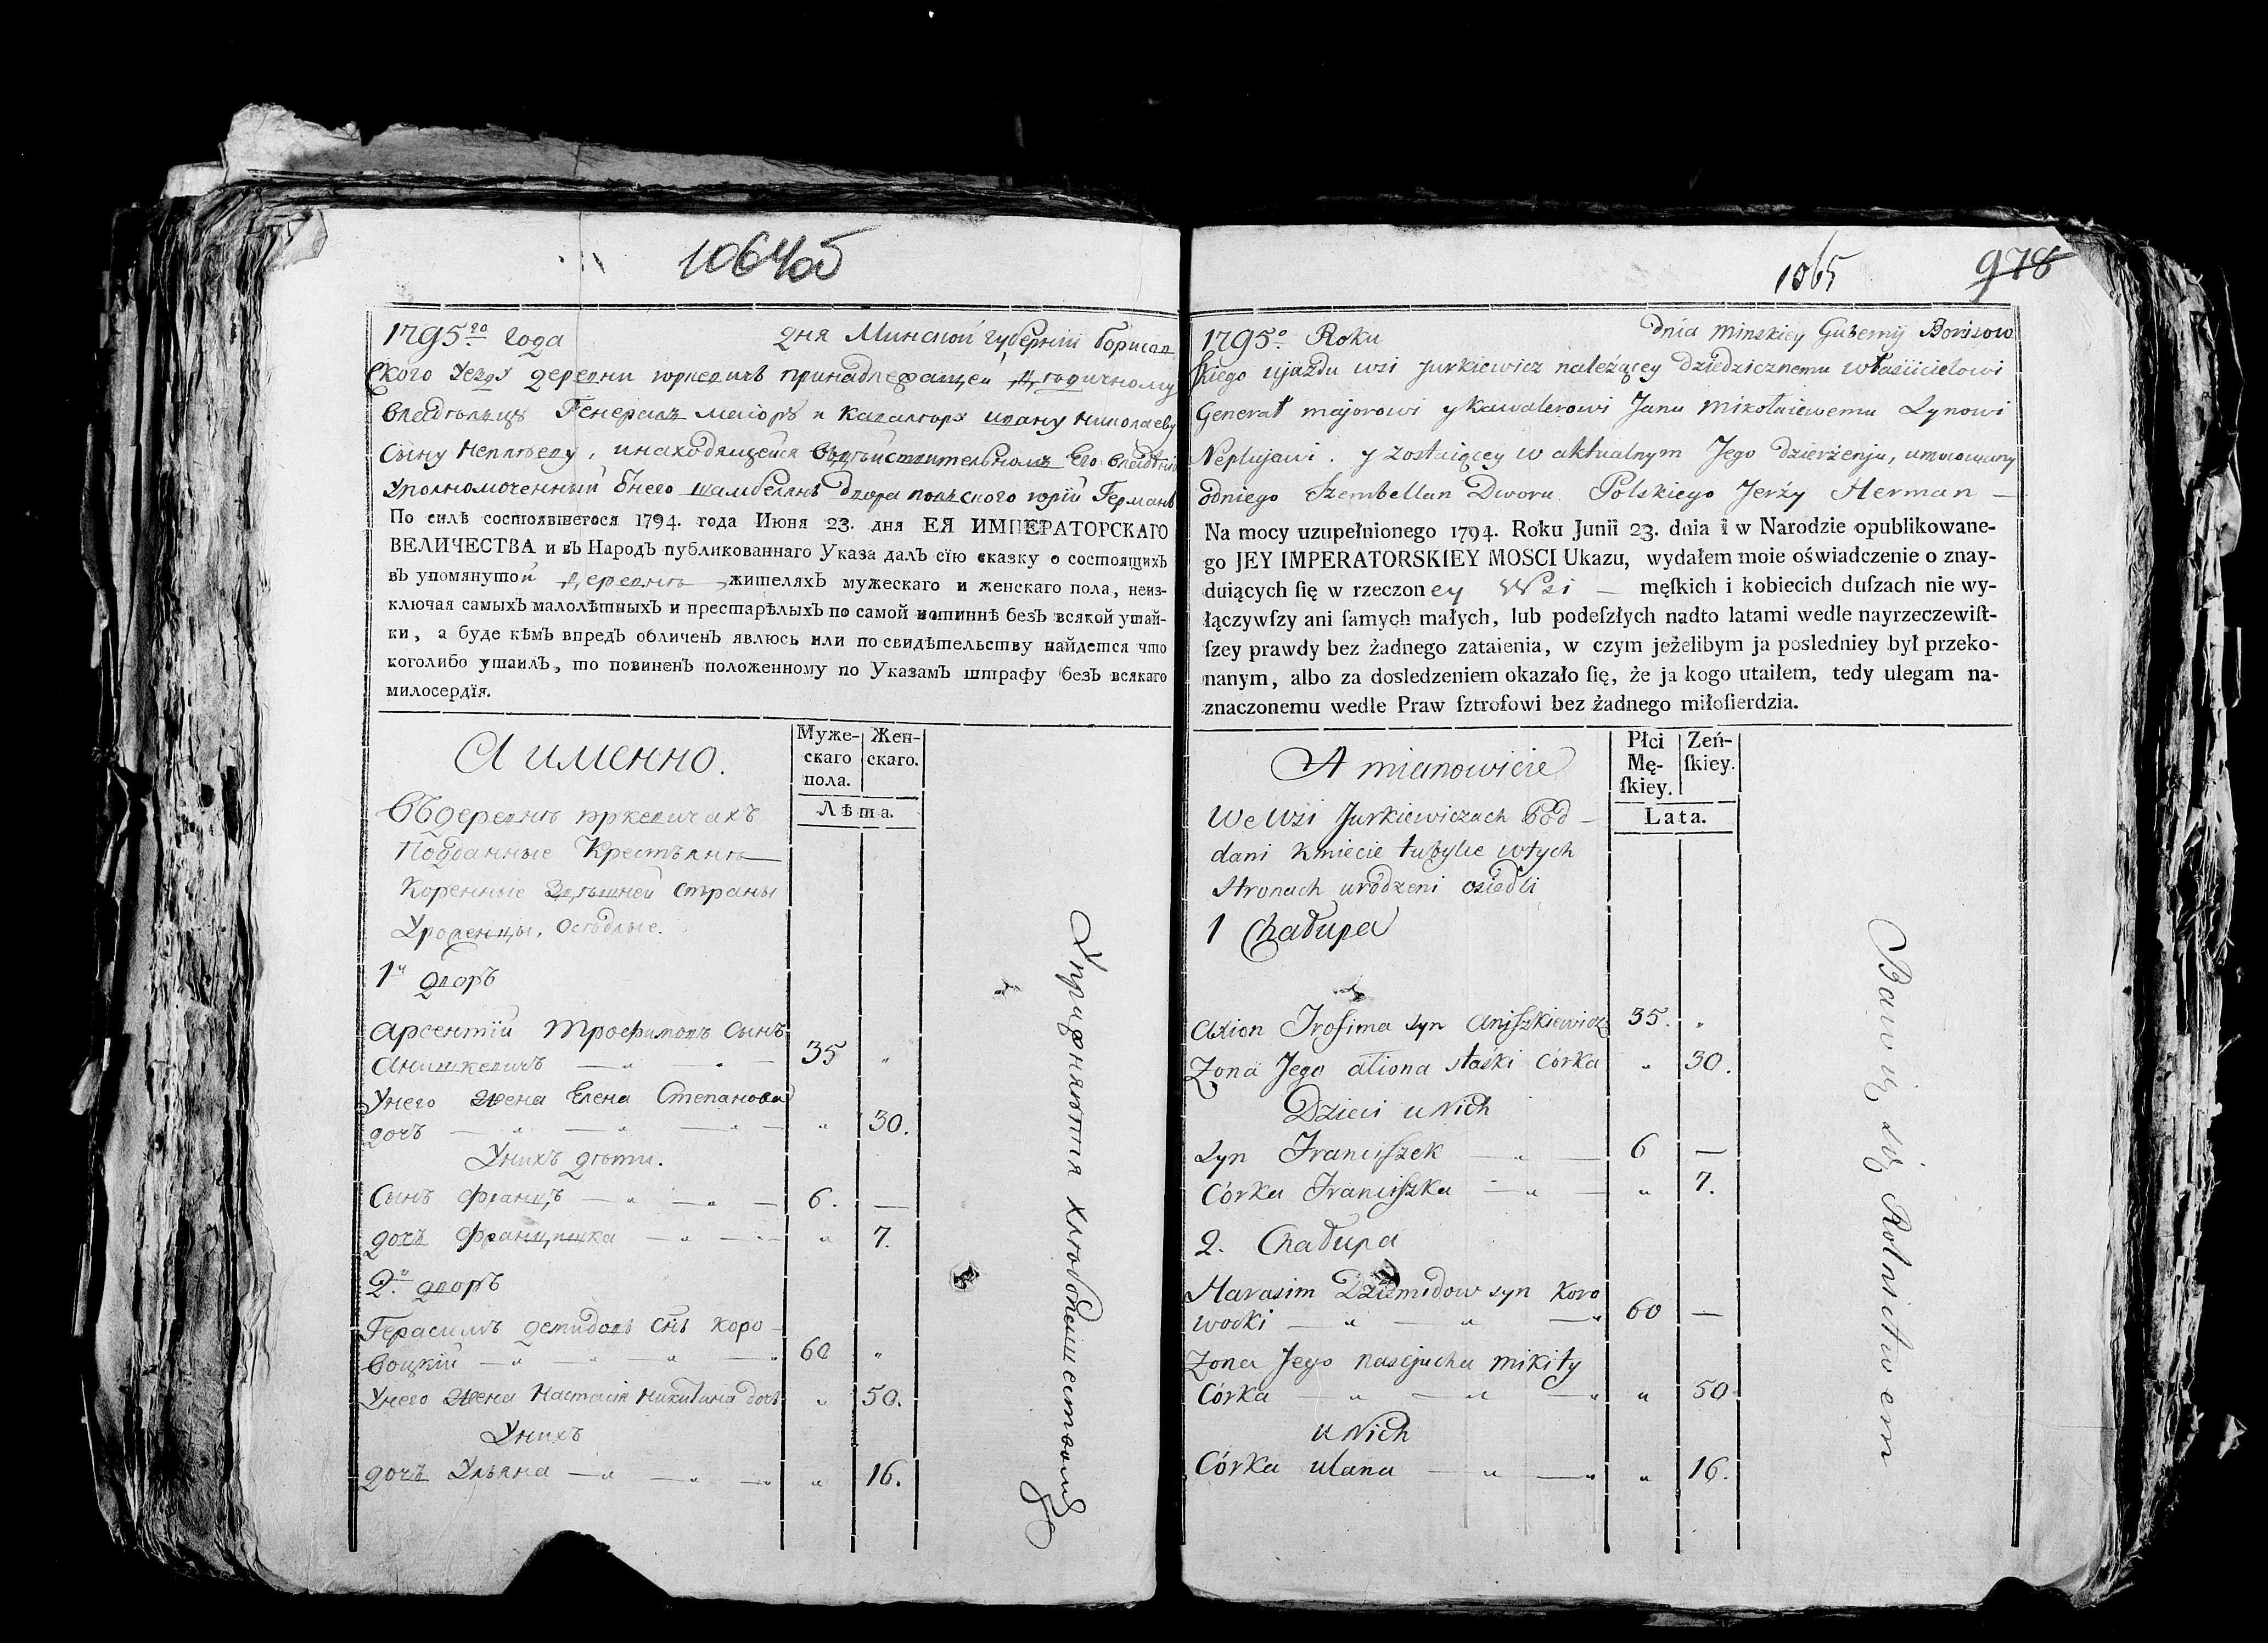 1064об
1795го года дня Минской губерний борисов
ского уезду деревни юркевичъ принадлежащей дѣдичному
владѣльцу Генералъ маиору и кавалеру ивану николаеву
сыну неплюеву, инаходящейся вдѣйствительномъ его владѣнiи
уполномоченный ѿнего шамбелянъ двора польского юрiй Германъ
По силѣ состоявшегося 1794. года Июня 23. дня ЕЯ ИМПЕРАТОРСКАГО
ВЕЛИЧЕСТВА и въ Народъ публикованнаго Указа далъ сїю сказку о состоящихъ
въ упомянутой деревнѣ жителяхъ мужескаго и женскаго пола, неиз-
ключая самыхъ малолѣтныхъ и престарѣлыхъ по самой истиннѣ безъ всякой утай-
ки, а буде кѣмъ впредъ обличенъ явлюсь или по свидѣтельству найдется что
коголибо утаилъ, то повиненъ положенному по Указамъ штрафу безъ всякаго
милосердїя.
А именно.
Муже- скаго пола.
Жен- скаго.
Лѣта.
Въдеревнѣ юркевичахъ
Подданные Крестьянѣ
Коренные здѣшней страны
Уроженцы, осѣдлые.
1й дворъ
Арсентiй Трофимовъ сынъ
Анишкевичъ — „ — „ — 35 „
Унего жена Елена Степанова
дочъ — „ — „ — „ — „ 30.
Унихъ дѣти.
Сынъ францъ — „ — „ — 6. —
дочъ францишка — „ — „ — „ 7.
2й дворъ
Герасимъ демидовъ снъ коро-
воцкiй — „ — „ „ — „ 60 „
Унего жена Настасiя никитина дочъ „ 50.
Унихъ
дочъ Ульяна — „ — „ — „ „ 16.
Упражняются хлѣбопашествомъ
1065
978
1795o Roku dnia minskiey Gubernij Borisow
skiego ujazdu wsi Jurkiewicz należącey dziedzicznemu własiicielowi
Generał majorowi y kawalerowi Janu Mikołaiewemu Synowi
Neplujawi. y zostaiącey w aktualnym Jego dzierżenju, umocowany
odniego Szembellan Dworu Polskiego Jerży Herman —
Na mocy uzupełnionego 1794. Roku Junii 23. dnia i w Narodzie opublikowane-
go JEY IMPERATORSKIEY MOSCI Ukazu, wydałem moie oświadczenie o znay-
duiących ſię w rzeczoney Wsi — męſkich i kobiecich duſzach nie wy-
łączywſzy ani ſamych małych, lub podeſzłych nadto latami wedle nayrzeczewiſt-
ſzey prawdy bez żadnego zataienia, w czym jeżelibym ja posledniey był przeko-
nanym, albo za dosledzeniem okazało ſię, że ja kogo utaiłem, tedy ulegam na-
znaczonemu wedle Praw ſztrofowi bez żadnego miłoſierdzia.
A mianowicie
Płci Mę- ſkiey.
Zeń- ſkiey.
Lata.
We Wsi Jurkiewiczach Pod-
dani kmiecie tubylce wtych
Stronach urodzeni osiedli
1 Chałupa
Axion Trofima syn Aniſzkiewicz 35. „
Zona Jego Aliona Staśki Córka „ 30.
Dzieci u Nich
Syn Franciſzek — „ — 6 —
Córka Franciſzka — „ — „ 7.
2. Chałupa
Harasim Dziemidow syn Koro
wocki — „ — „ — „ 60 —
Zona Jego nascjucha mikity
Córka — „ — „ — „ „ 50
u Nich
Córka ulana — „ — „ „ 16.
Bawią się Rolnictwem